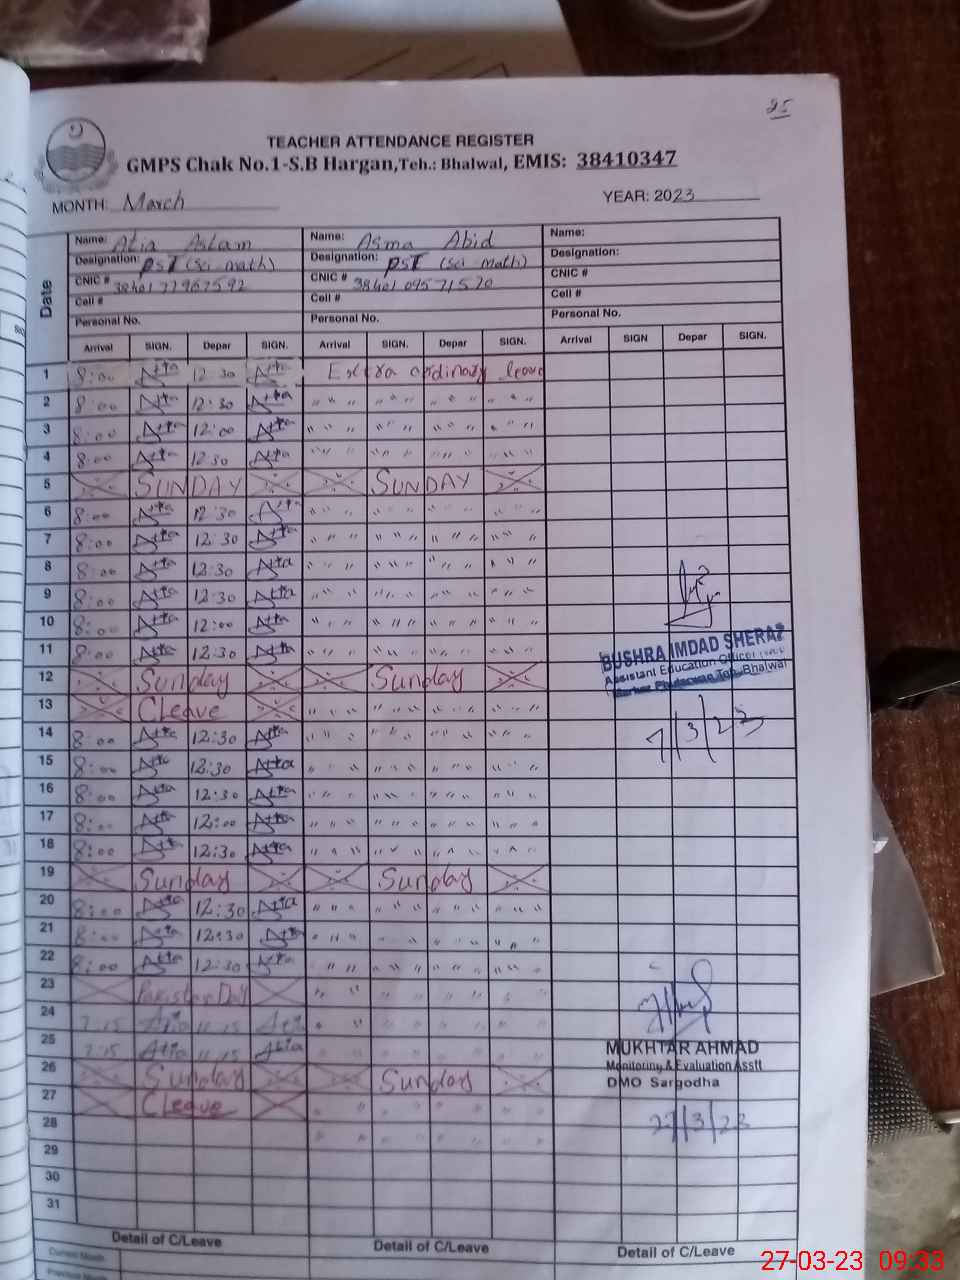 25
TEACHER ATTENDANCE REGISTER
GMPS Chak No.1-S.B Hargan,Teh.: Bhalwal, EMIS: 38410347
MONTH: March YEAR: 2023
Date
Name: Atia Aslam Name: Asma Abid Name:
Designation: PST (sci math) Designation: PST (sci math) Designation:
CNIC # 3840177967592 CNIC # 3840109571520 CNIC #
Cell # Cell # Cell #
Personal No. Personal No. Personal No.
Arrival SIGN. Depar SIGN. Arrival SIGN. Depar SIGN. Arrival SIGN Depar SIGN.
1 8:00 Atia 12 30 Atia Extra ordinary leave
2 8:00 Atia 12:30 Atia " " " " " " " " " " "
3 8:00 Atia 12:00 Atia " " " " " " " " " " "
4 8:00 Atia 12 30 Atia " " " " " " " " " " "
5 SUNDAY SUNDAY
6 8:00 Atia 12:30 Atia " " " " " " " " " " "
7 8:00 Atia 12:30 Atia " " " " " " " " " " "
8 8:00 Atia 12:30 Atia " " " " " " " " " " "
9 8:00 Atia 12:30 Atia " " " " " " " " " " "
10 8:00 Atia 12:00 Atia " " " " " " " " " " "
11 8:00 Atia 12:30 Atia " " " " " " " " " " "
BUSHRA IMDAD SHERAZ
Assistant Education Officer
Bhalwal
12 Sunday Sunday
13 C Leave " " " " " " " " " " "
7/3/23
14 8:00 Atia 12:30 Atia " " " " " " " " " " "
15 8:00 Atia 12:30 Atia " " " " " " " " " " "
16 8:00 Atia 12:30 Atia " " " " " " " " " " "
17 8:00 Atia 12:00 Atia " " " " " " " " " " "
18 8:00 Atia 12:30 Atia " " " " " " " " " " "
19 Sunday Sunday
20 8:00 Atia 12:30 Atia " " " " " " " " " " "
21 8:00 Atia 12:30 Atia " " " " " " " " " " "
22 8:00 Atia 12:30 Atia " " " " " " " " " " "
23 Pakistan Day " " " " " " " " " " "
24 7:15 Atia 11 15 Atia " " " " " " " " " "
25 7:15 Atia 11 15 Atia " " " " " " " " " "
MUKHTAR AHMAD
Monitoring & Evaluation Asstt
DMO Sargodha
26 Sunday Sunday
27 C Leave " " " " " " " " " "
27/3/23
28 " " " " " " " " " "
29
30
31
Detail of C/Leave Detail of C/Leave Detail of C/Leave
Current Month
Previous Month
27-03-23 09:33